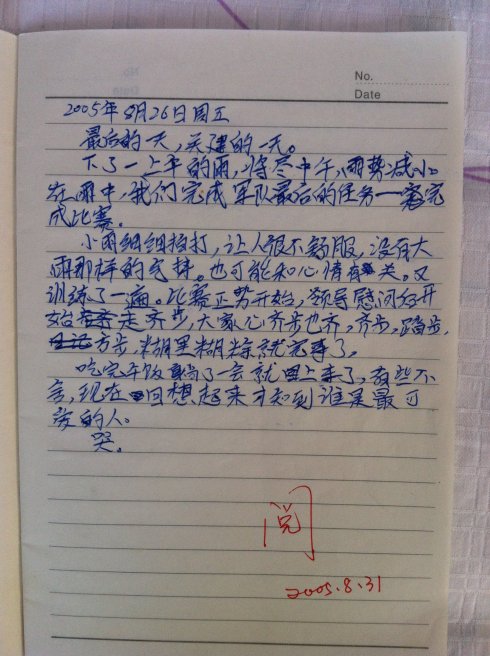 No.
Date
2005年8月26日周五
最后的一天，关键的一天。
下了一上午的雨，将尽中午，雨势减小
在雨中，我们完成军队最后的任务—完
成比赛。
小雨细细拍打，让人很不舒服，没有大
雨那样的完。也可能和心情有关。又
训练了一遍。比赛正势开始，领导慰问好开
始走齐步，大家心齐步也齐，齐步，踏步，
方步，糊里糊涂就完事了。
吃完午饭躺了一会就上来了，有些不
舍，现在回想起来才知到谁是最可
爱的人。
哭。
阅
2005.8.31